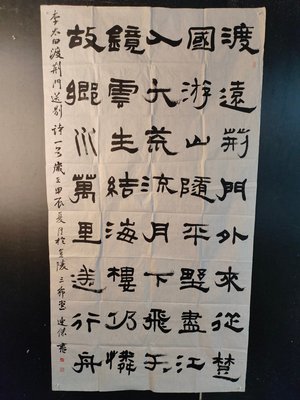 渡遠荆門外來從楚
國游山隨平野盡江
入大荒流月下飛天
鏡雲生結海樓仍憐
故鄉水萬里送行舟
李太白渡荆門送别 詩一首 歲在甲辰夏月於金陵三希堂 書